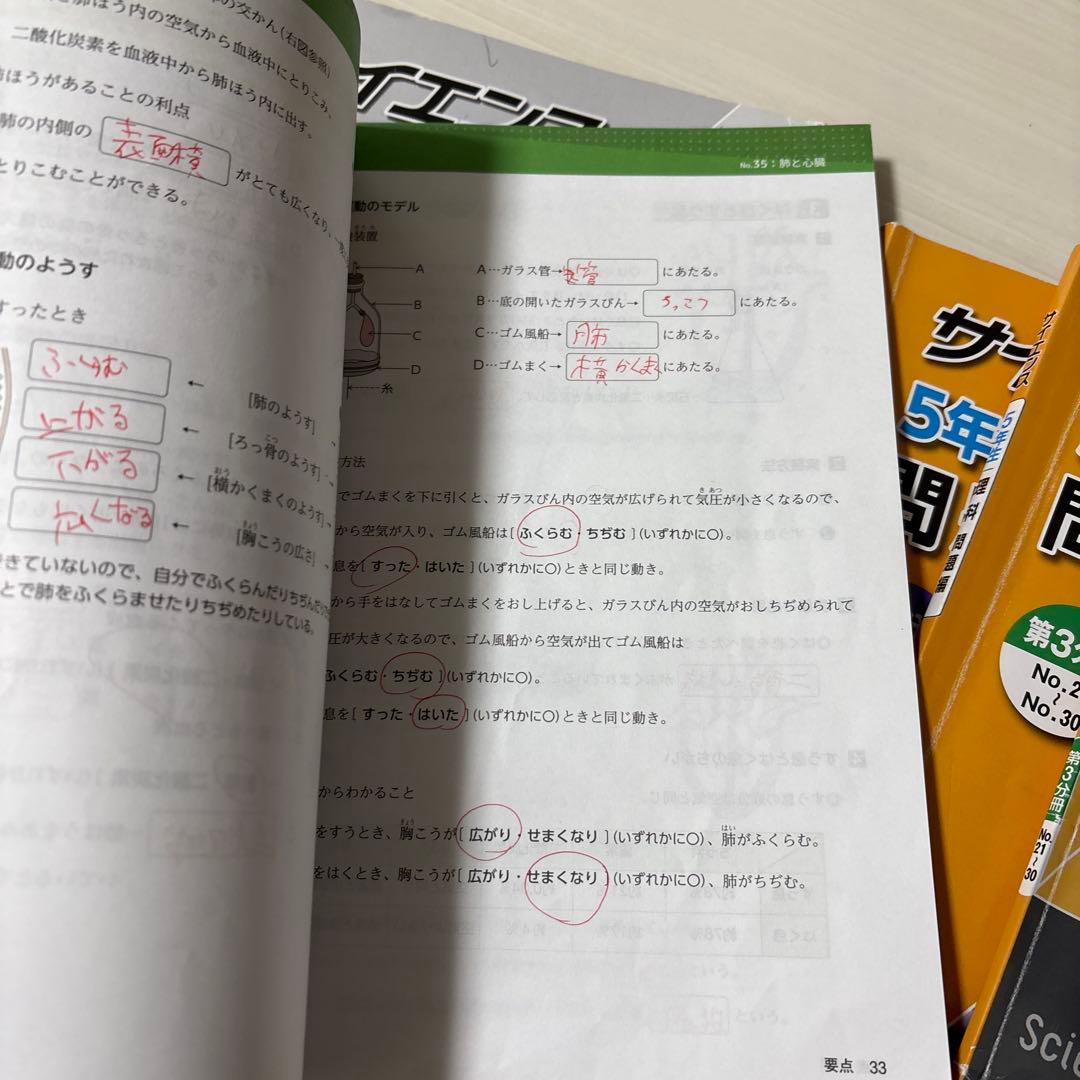 の交かん(右図参照)
肺ほう内の空気から血液中にとりこみ、
二酸化炭素を血液中から肺ほう内に出す。
肺ほうがあることの利点
肺の内側の 表面積 がとても広くなり、
とりこむことができる。
動のようす
すったとき
ふくらむ ← [肺のようす]
上がる ← [ろっ骨のようす]
下がる ← [横かくまくのようす]
広くなる ← [胸こうの広さ]
できていないので、自分でふくらんだりちぢんだり
とで肺をふくらませたりちぢめたりしている。
イエンス
No.35:肺と心臓
動のモデル
装置
A
B
C
D
糸
A…ガラス管→ 気管 にあたる。
B…底の開いたガラスびん→ ろっこつ にあたる。
C…ゴム風船→ 肺 にあたる。
D…ゴムまく→ 横かくまく にあたる。
方法
でゴムまくを下に引くと、ガラスびん内の空気が広げられて気圧が小さくなるので、
から空気が入り、ゴム風船は[ ふくらむ・ちぢむ ](いずれかに○)。
息を[ すった・はいた ](いずれかに○)ときと同じ動き。
から手をはなしてゴムまくをおし上げると、ガラスびん内の空気がおしちぢめられて
圧が大きくなるので、ゴム風船から空気が出てゴム風船は
ふくらむ・ちぢむ ](いずれかに○)。
息を[ すった・はいた ](いずれかに○)ときと同じ動き。
からわかること
をすうとき、胸こうが[ 広がり・せまくなり ](いずれかに○)、肺がふくらむ。
をはくとき、胸こうが[ 広がり・せまくなり ](いずれかに○)、肺がちぢむ。
要点 33
サイ
5年
問
サイエンス
5年生
理科
問題編
第3分冊
No.21
~
No.30
問
第3分
No.2
~
No.30
Scie